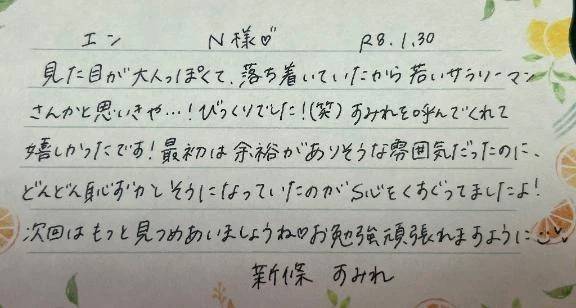 エン N様♡ R8.1.30
見た目が大人っぽくて、落ち着いていたから若いサラリーマン
さんかと思いきや…!びっくりでした!(笑)すみれを呼んでくれて
嬉しかったです!最初は余裕がありそうな雰囲気だったのに、
どんどん恥ずかしそうになっていたのがS心をくすぐってましたよ!
次回はもっと見つめあいましょうね♡お勉強頑張れますように
新條 すみれ